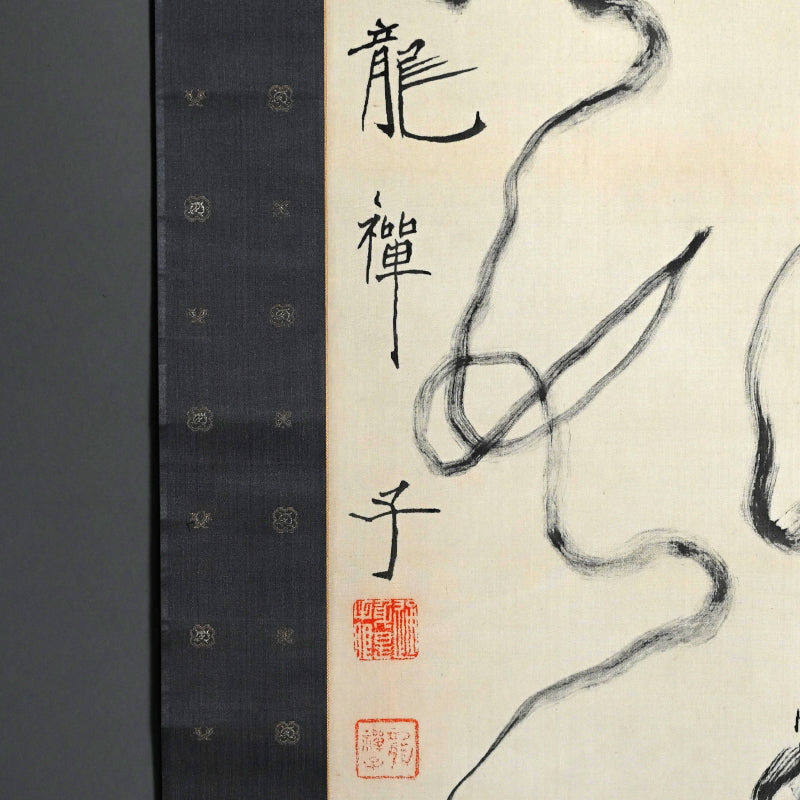 龍禪子